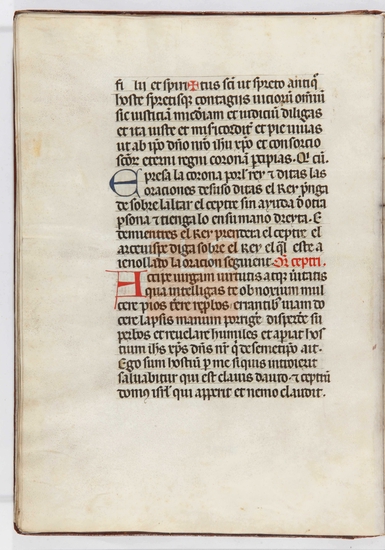 fi lii et spiri✠tus sci ut spreto antiq
hoste spretisq contagiis uiciorum omniu
sic iusticiam micdiam et iudicium diligas
et ita iuste et misericordit et pie uiuas
ut ab ipo dno nro ihu xpo et consorcio
scor eterni regni coronam percipias. Qr cu.
Epresa la corona por l rey τ ditas las
oraciones desuso ditas el Rey prenga
de sobre laltar el ceptre sin ayuda dotra
psona τ tiengalo en su mano dreyta. E
demientres el Rey prentera el ceptre el
arceuispe diga sobre el Rey el ql este a
ienollado la oracion seguient. Or ceptri.
Accipe uirgam uirtutis atqz ueritatis
qua intelligas te obnoxium mul
cere pios terrere reprobos errantibus uiam do
cere lapsis manum porrige disperde su
perbos et reuelare humiles et apiat hos
tium ihs xps dns nr q de semetipo ait.
Ego sum hostium p me si quis introierit
saluabitur qui est clauis dauid τ ceptru
domus isrl qui apperit et nemo claudit.